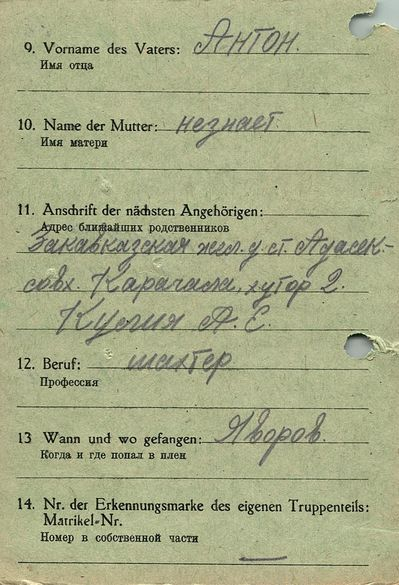 9. Vorname des Vaters: Антон.
Имя отца
10. Name der Mutter: незнает
Имя матери
11. Anschrift der nächsten Angehörigen:
Адрес ближайших родственников
Закавказская жел. д. ст. Адасек-
совх. Карачала, хутор 2.
А. Е.
12. Beruf: шахтер
Профессия
13 Wann und wo gefangen: Яворов.
Когда и где попал в плен
14. Nr. der Erkennungsmarke des eigenen Truppenteils:
Matrikel-Nr.
Номер в собственной части
—